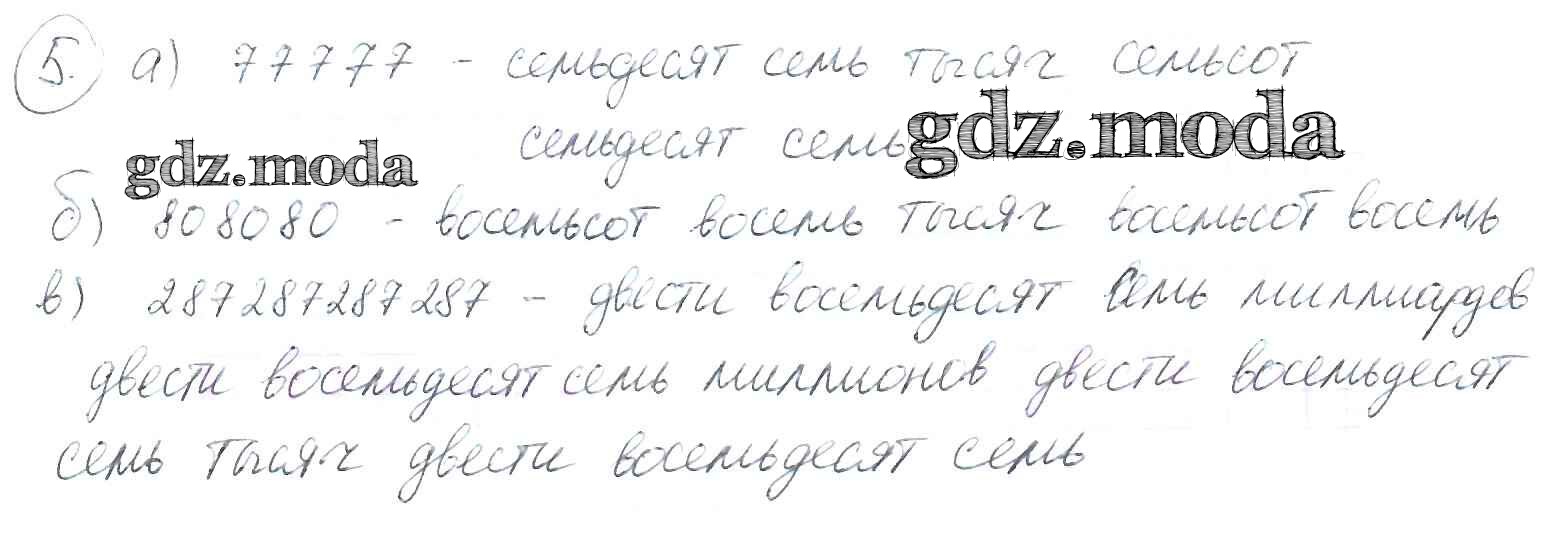 5. а) 77777 - семьдесят семь тысяч семьсот
семьдесят семь
gdz.moda
gdz.moda
б) 808080 - восемьсот восемь тысяч восемьсот восемь
в) 287287287287 - двести восемьдесят семь миллиардов
двести восемьдесят семь миллионов двести восемьдесят
семь тысяч двести восемьдесят семь